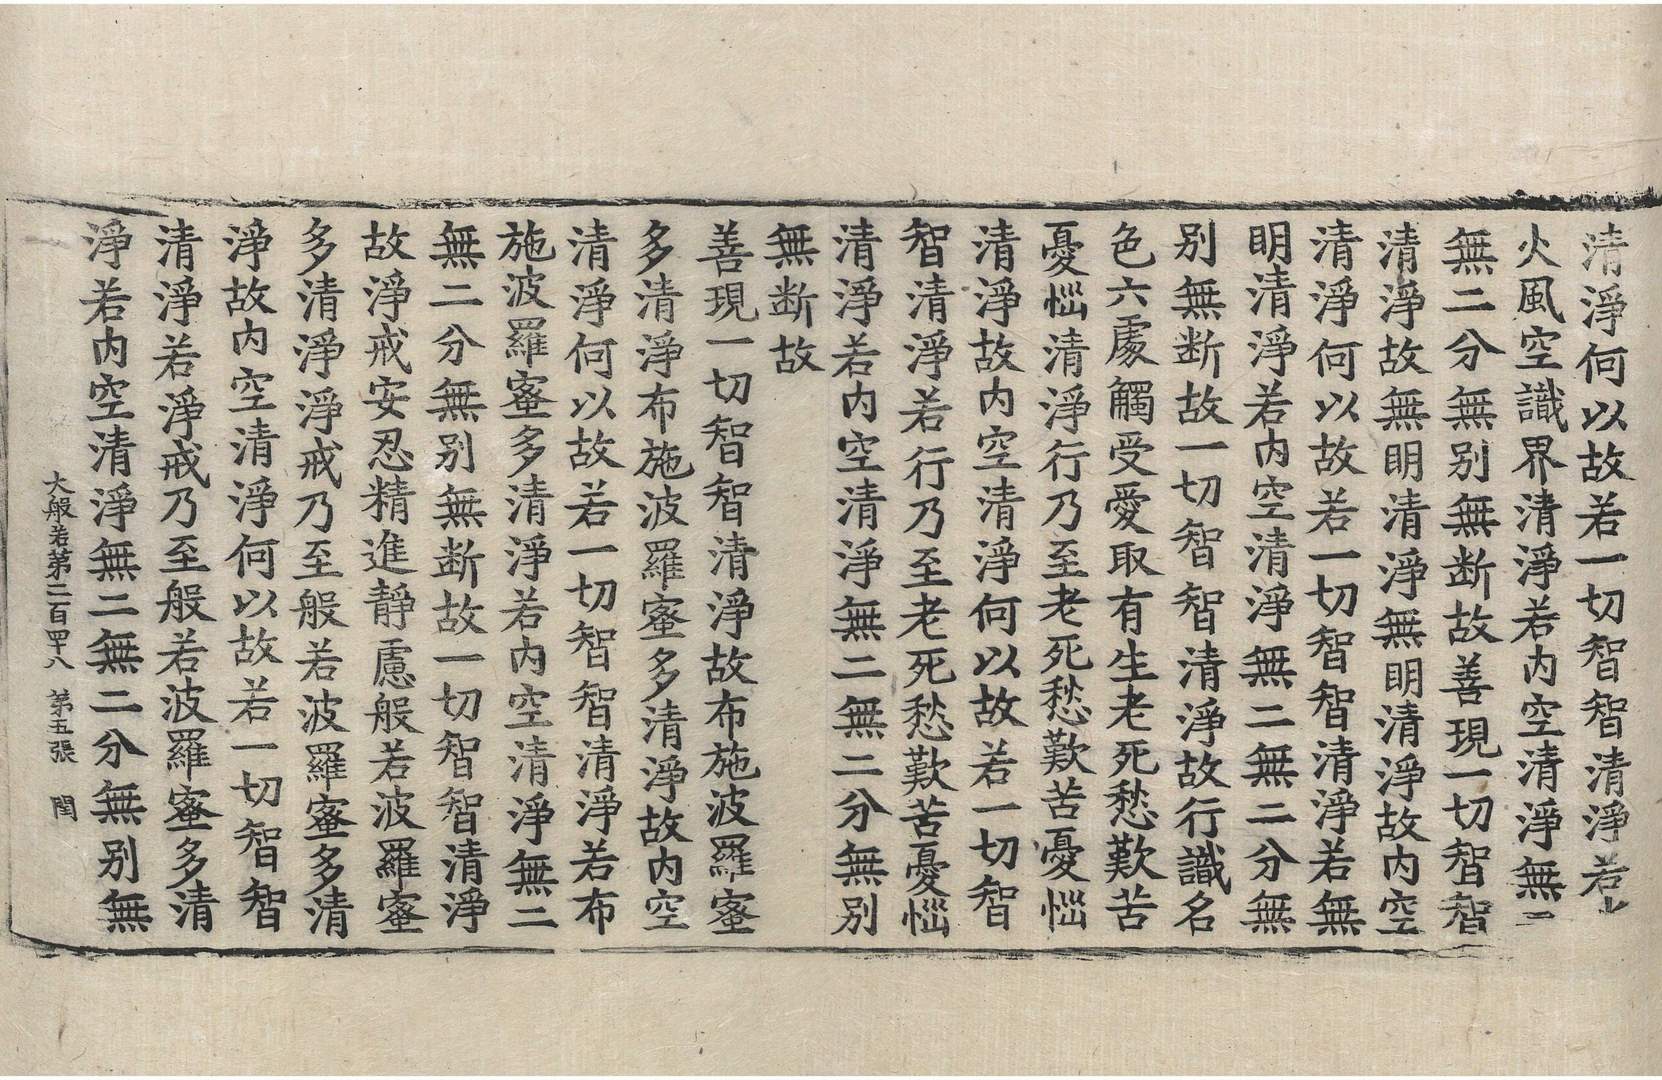 清淨何以故若一切智智清淨若
火風空識界清淨若内空清淨無二
無二分無别無断故善現一切智智
清淨故無眀清淨無眀清淨故内空
清淨何以故若一切智智清淨若無
眀清淨若内空清淨無二無二分無
别無断故一切智智清淨故行識名
色六處觸受愛取有生老死愁歎苦
憂惱清淨行乃至老死愁歎苦憂惱
清淨故内空清淨何以故若一切智
智清淨若行乃至老死愁歎苦憂惱
清淨若内空清淨無二無二分無别
無断故
善現一切智智清淨故布施波羅蜜
多清淨布施波羅蜜多清淨故内空
清淨何以故若一切智智清淨若布
施波羅蜜多清淨若内空清淨無二
無二分無别無断故一切智智清淨
故淨戒安忍精進靜慮般若波羅蜜
多清淨淨戒乃至般若波羅蜜多清
淨故内空清淨何以故若一切智智
清淨若淨戒乃至般若波羅蜜多清
淨若内空清淨無二無二分無别無
大般若第二百四十八 第五張 閏